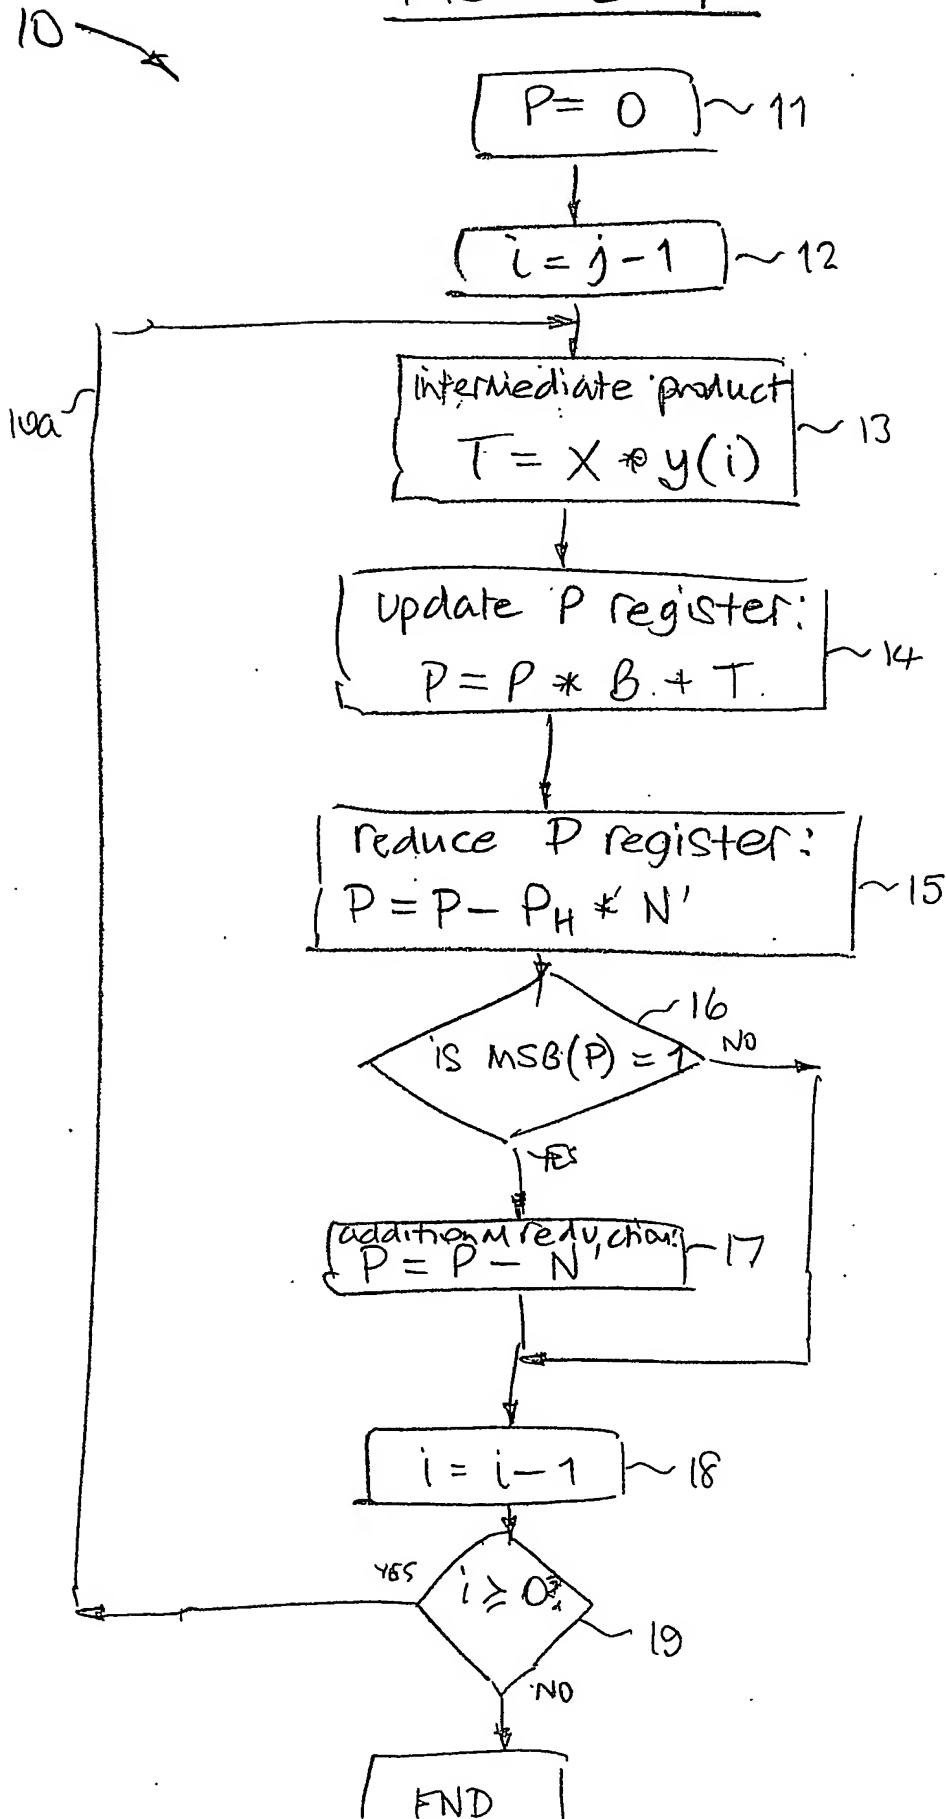 10
P = 0
11
i = j - 1
12
10a
intermediate product
T = X * y(i)
13
update P register:
P = P * B. + T.
14
reduce P register:
P = P - PH * N'
15
16
is MSB(P) = 1
NO
YES
additional reduction:
P = P - N'
17
i = i - 1
18
YES
i ≥ 0?
19
NO
END